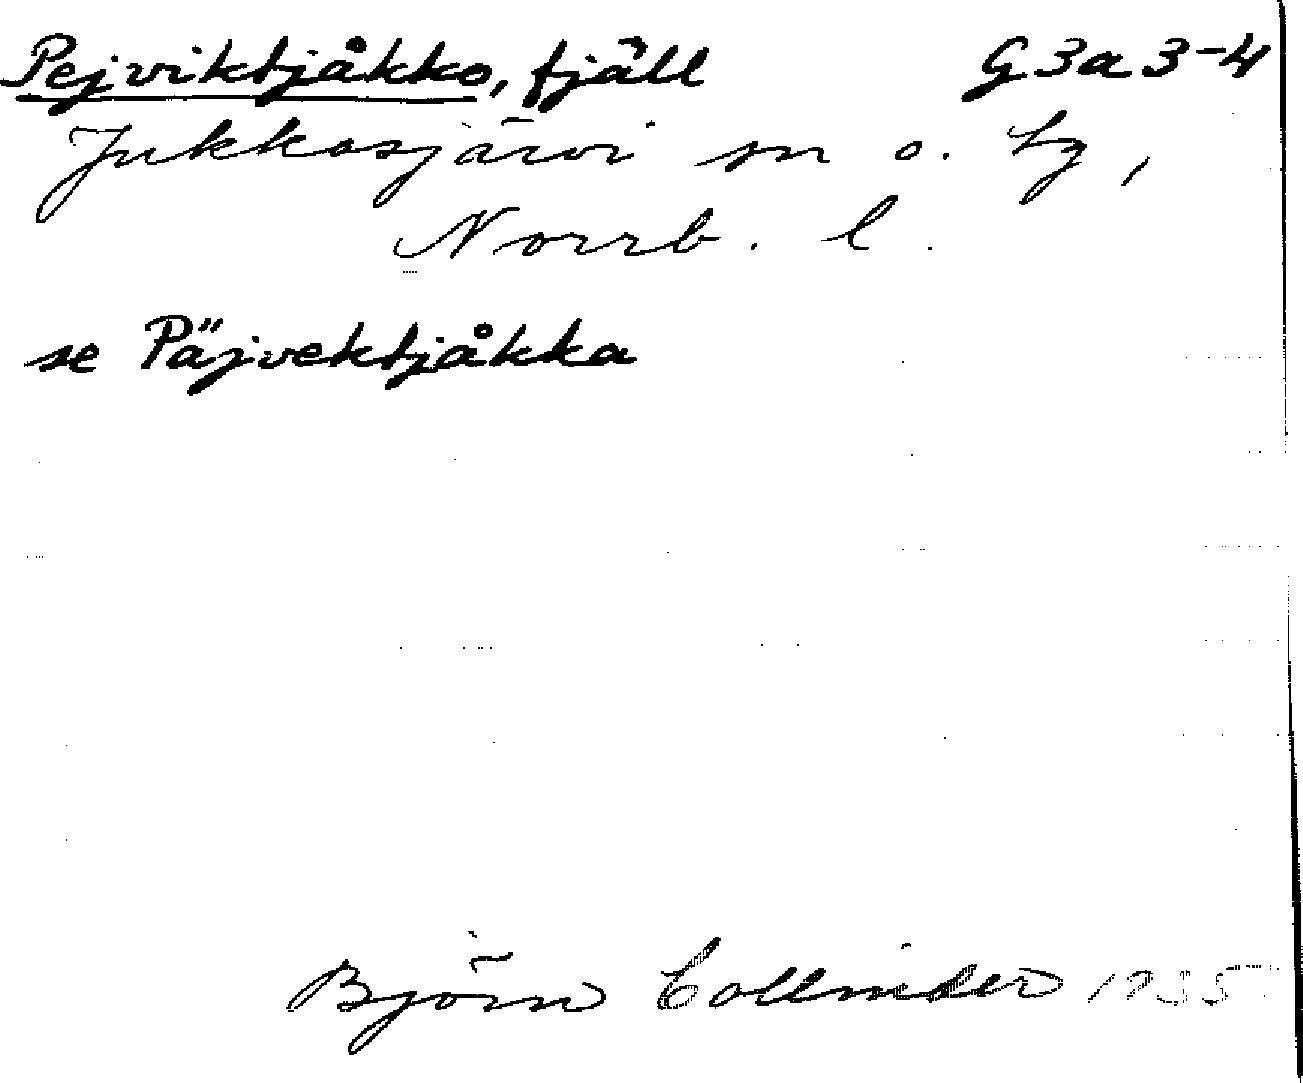 Pejviktjåkko, fjäll G3a3-4
Jukkasjärvi sn o. tg,
Norrb. l.
se Päjvektjåkka
Björn Collinder 1935